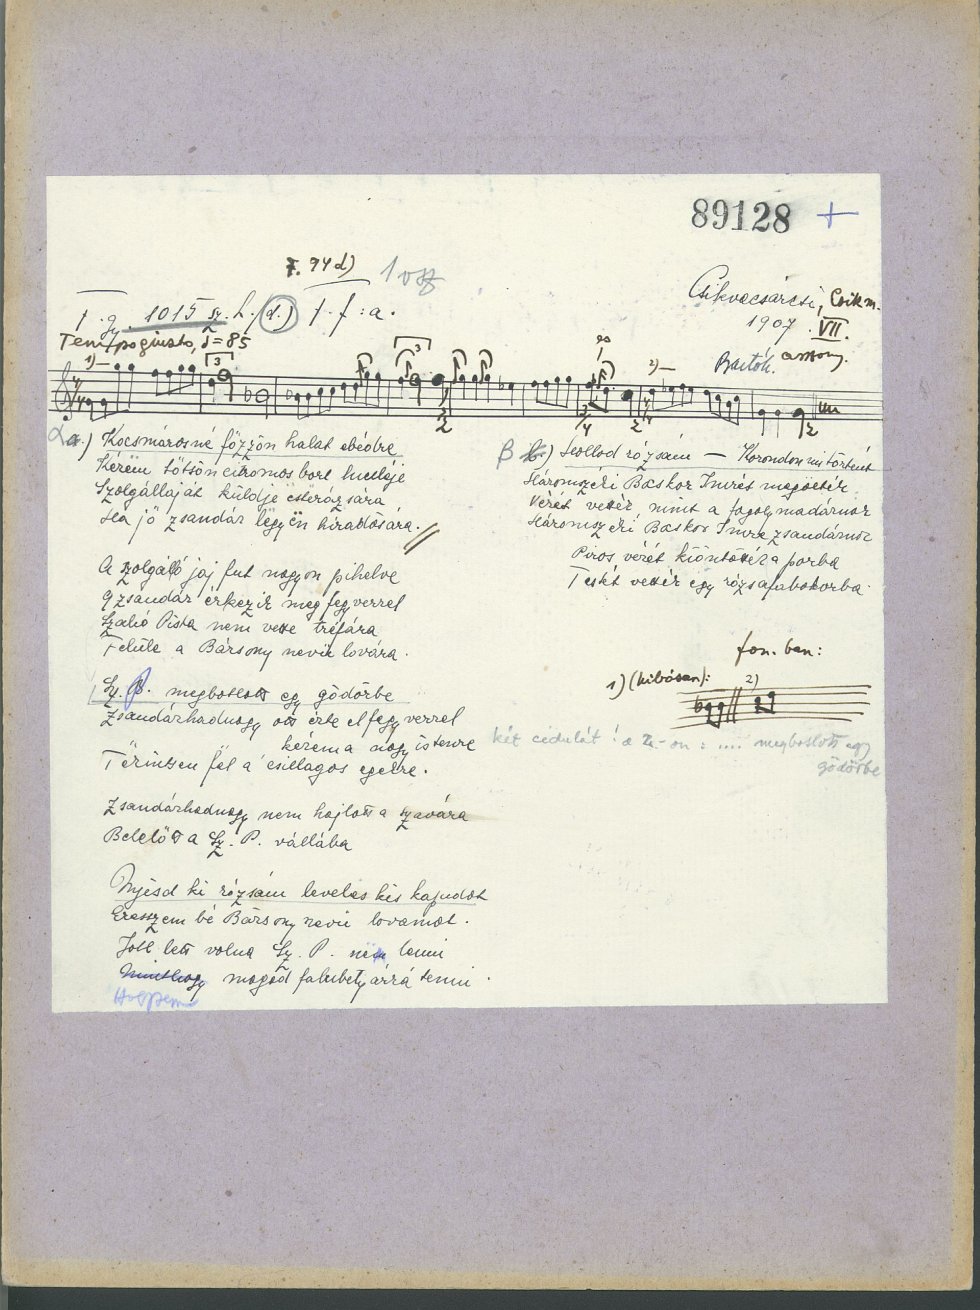 89128 +
7. 74 d) 1 vsz
Csikvacsárcsi, Csik m.
1907. VII.
1015 sz. L. d.) f : a.
Tempo giusto, = 85
Bartók. asszony.
1) 3 3 2)
α a.) Kocsmárosné főzzön halat ebédre
Kérëm töltsön citromos bort mellé je
Szolgállóját küldje ësterázsára
Ha jő zsandár lëgyën híradására.
A szolgáló jáj fut nagyon pihelve
9 zsandár érkezik meg fegyverrel
Szabó Pista nem vette tréfára
Felüle a Bársony nevü lovára.
Sz. P. megbotlott egy gödörbe
Zsandárhadnagy ott érte el fegyverrel
kérem a nagy istenre
Tëkintsen fël a csillagos egekre.
Zsandárhadnagy nem hajlott a szavára
Belelőtt a Sz. P. vállába
Nyisd ki rózsám leveles kis kapudat
Eresszem bé Bársony nevü lovamot.
Jobb lett volna Sz. P. nem lenni
Minthogy magad falubetyárrá tenni.
β b.) Hallod rózsám — Korondon mi történt
Háromszéki Bacskor Imrét megöeték
Vérét vették, mint a fogolymadárnak
Háromszéki Bacskor Imre zsandárnak
Piros vérét kiöntötték a porba
Testét vették egy rózsafabokorba.
fon. ben:
1) (hibásan): 2)
két cédulát ! a 2.-on : .... megbotlott egy
gödörbe